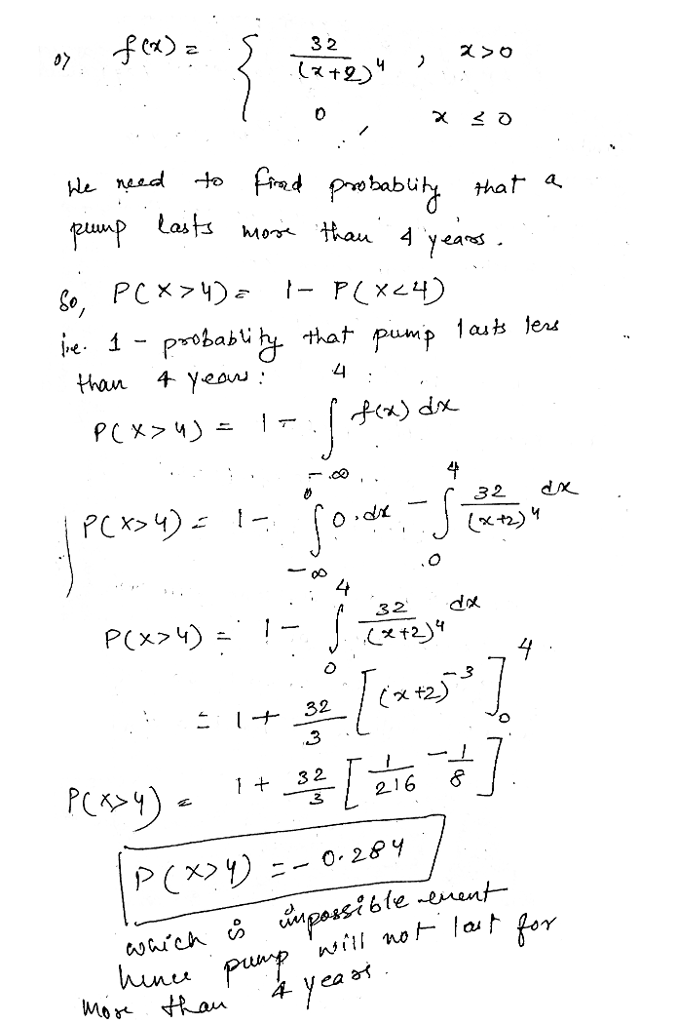 0) f(x) = { 32/(x+2)⁴ , x>0
0 , x ≤ 0
We need to find probablity that a
pump lasts more than 4 years.
So, P(X>4) = 1 - P(X<4)
i.e. 1 - probablity that pump lasts less
than 4 years:
P(X>4) = 1 - ∫_{-∞}^{4} f(x) dx
P(X>4) = 1 - ∫_{-∞}^{0} 0.dx - ∫_{0}^{4} 32/(x+2)⁴ dx
P(X>4) = 1 - ∫_{0}^{4} 32/(x+2)⁴ dx
= 1 + 32/3 [(x+2)^{-3}]_{0}^{4}
P(X>4) = 1 + 32/3 [1/216 - 1/8]
P(X>4) = -0.284
which is impossible event
hence pump will not last for
more than 4 years.